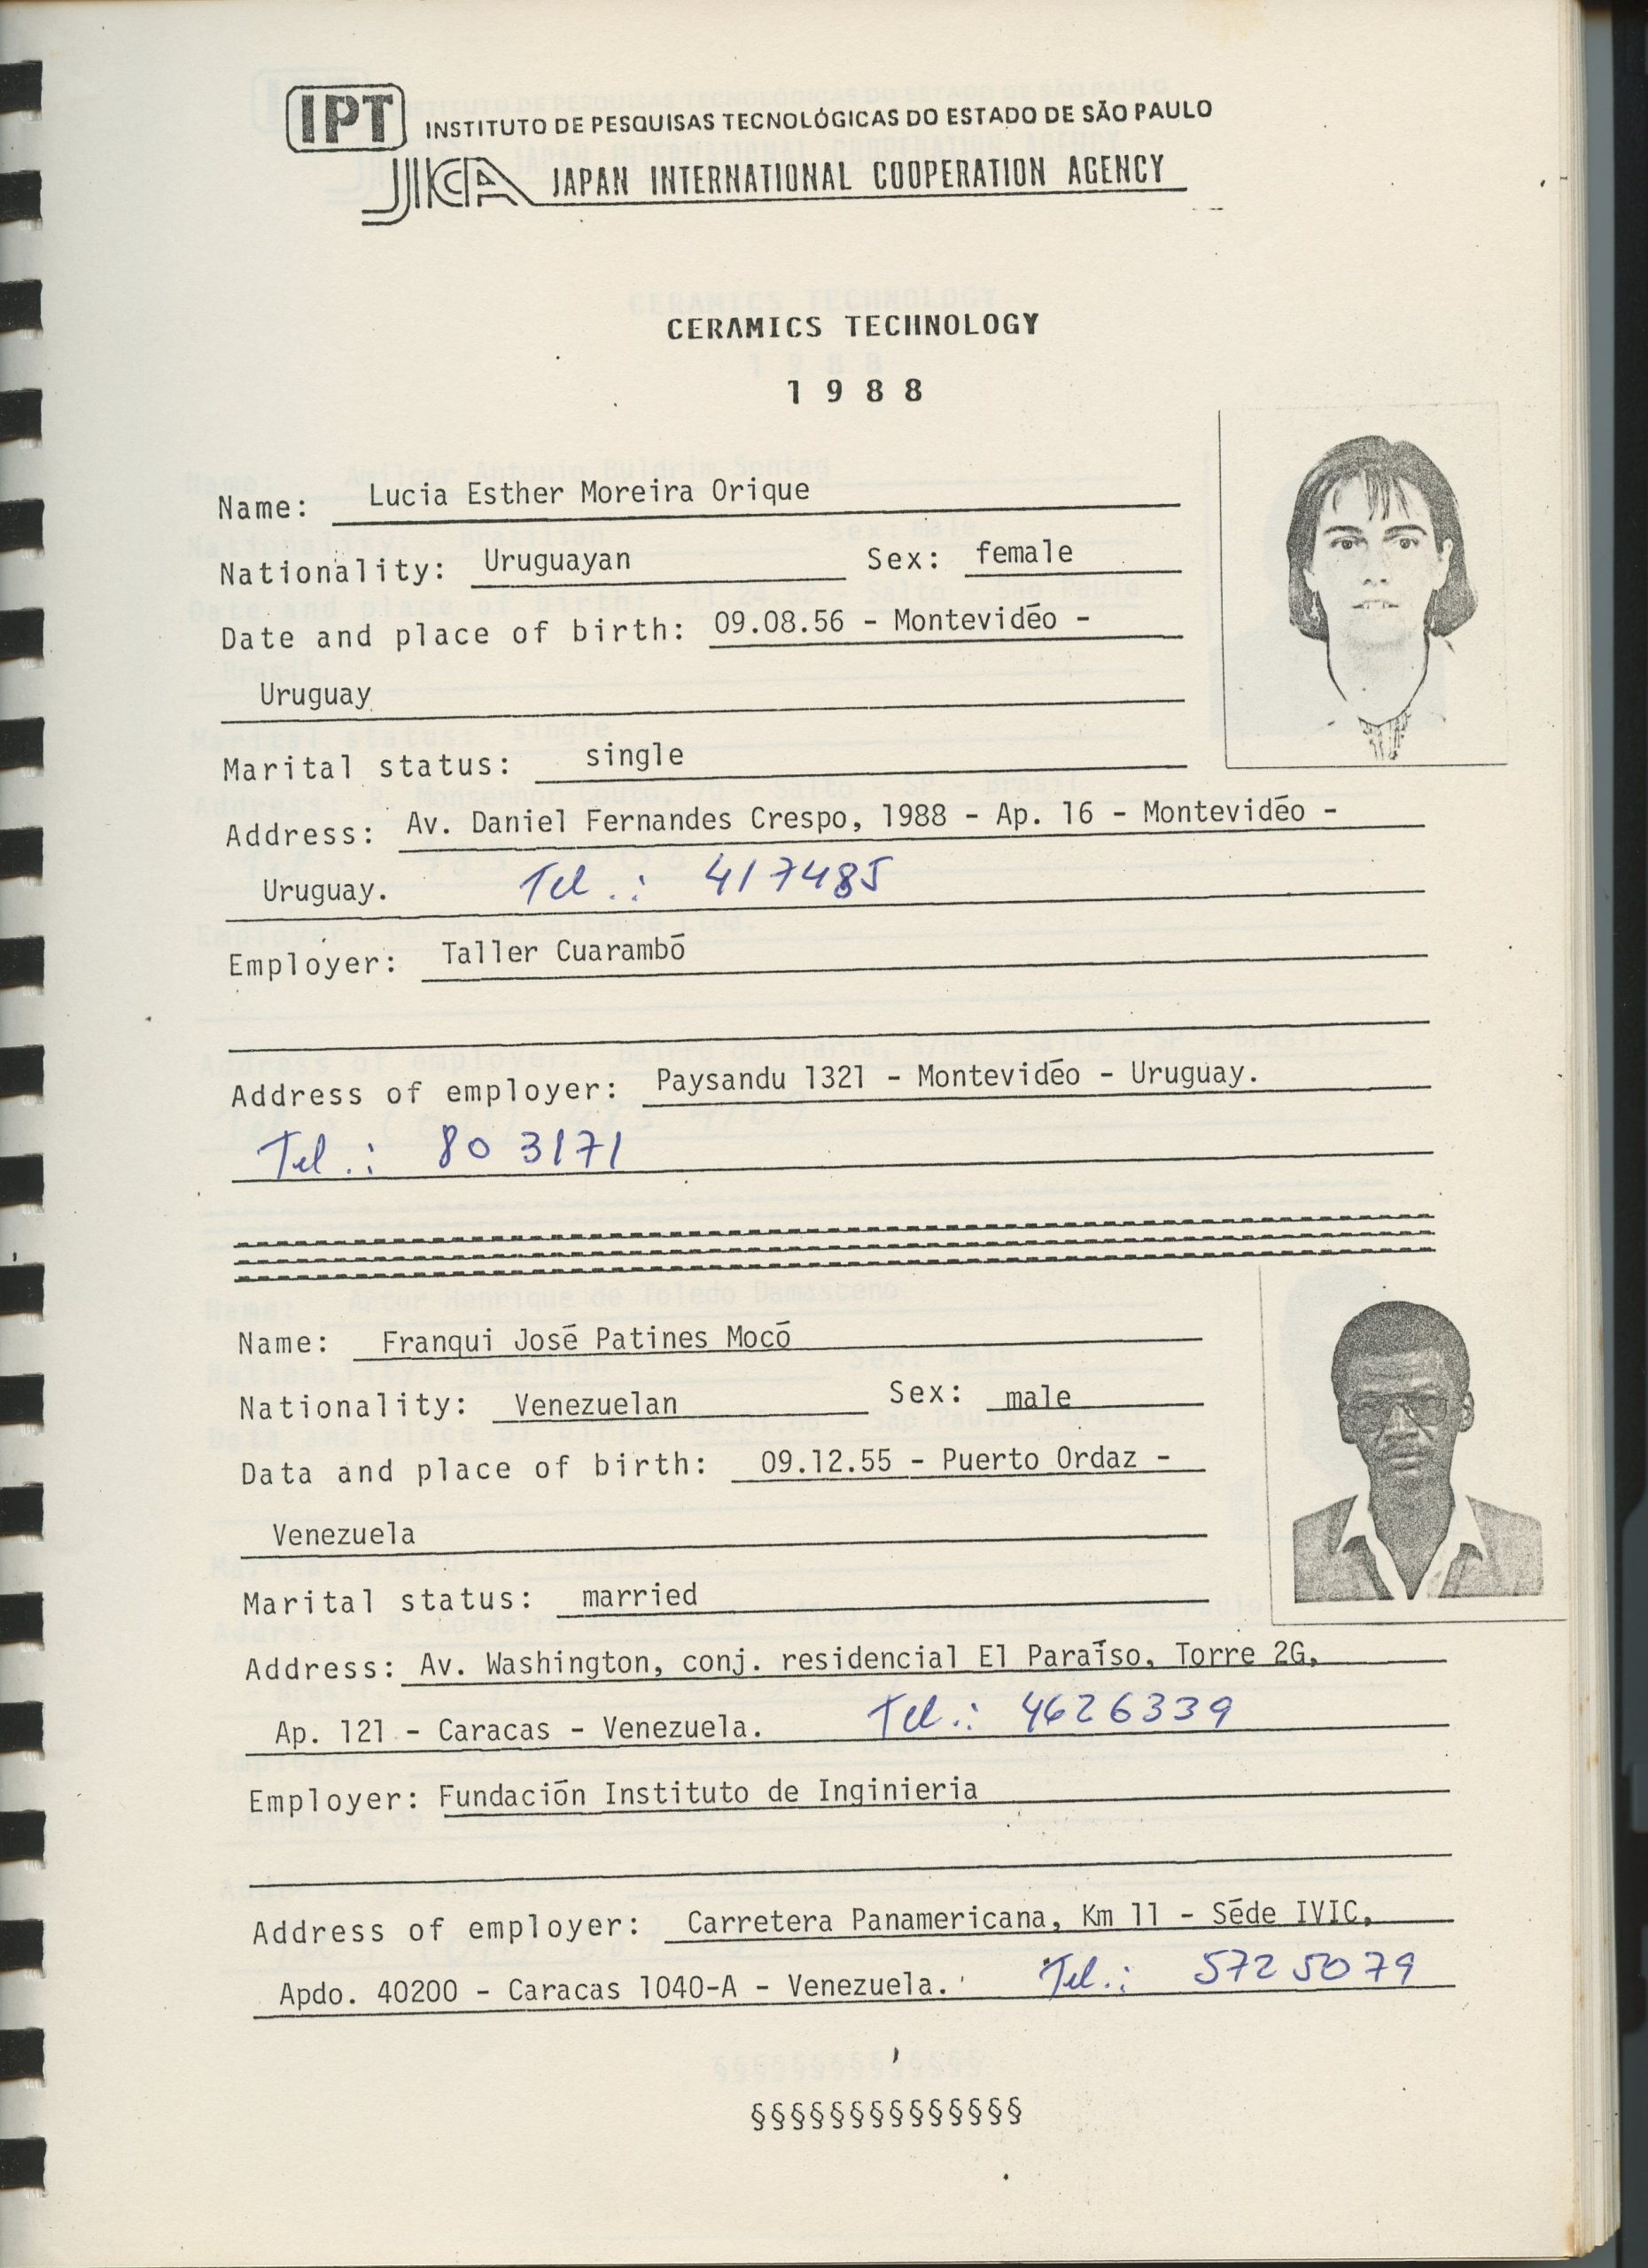 IPT INSTITUTO DE PESQUISAS TECNOLÓGICAS DO ESTADO DE SÃO PAULO
JICA JAPAN INTERNATIONAL COOPERATION AGENCY
CERAMICS TECHNOLOGY
1 9 8 8
Name: Lucia Esther Moreira Orique
Nationality: Uruguayan Sex: female
Date and place of birth: 09.08.56 - Montevidéo -
Uruguay
Marital status: single
Address: Av. Daniel Fernandes Crespo, 1988 - Ap. 16 - Montevidéo -
Uruguay. Tel.: 417485
Employer: Taller Cuarambó
Address of employer: Paysandu 1321 - Montevidéo - Uruguay.
Tel.: 80 3171
Name: Franqui José Patines Mocó
Nationality: Venezuelan Sex: male
Data and place of birth: 09.12.55 - Puerto Ordaz -
Venezuela
Marital status: married
Address: Av. Washington, conj. residencial El Paraíso, Torre 2G,
Ap. 121 - Caracas - Venezuela. Tel.: 4626339
Employer: Fundación Instituto de Inginieria
Address of employer: Carretera Panamericana, Km 11 - Séde IVIC,
Apdo. 40200 - Caracas 1040-A - Venezuela. Tel.: 572 5079
§§§§§§§§§§§§§§